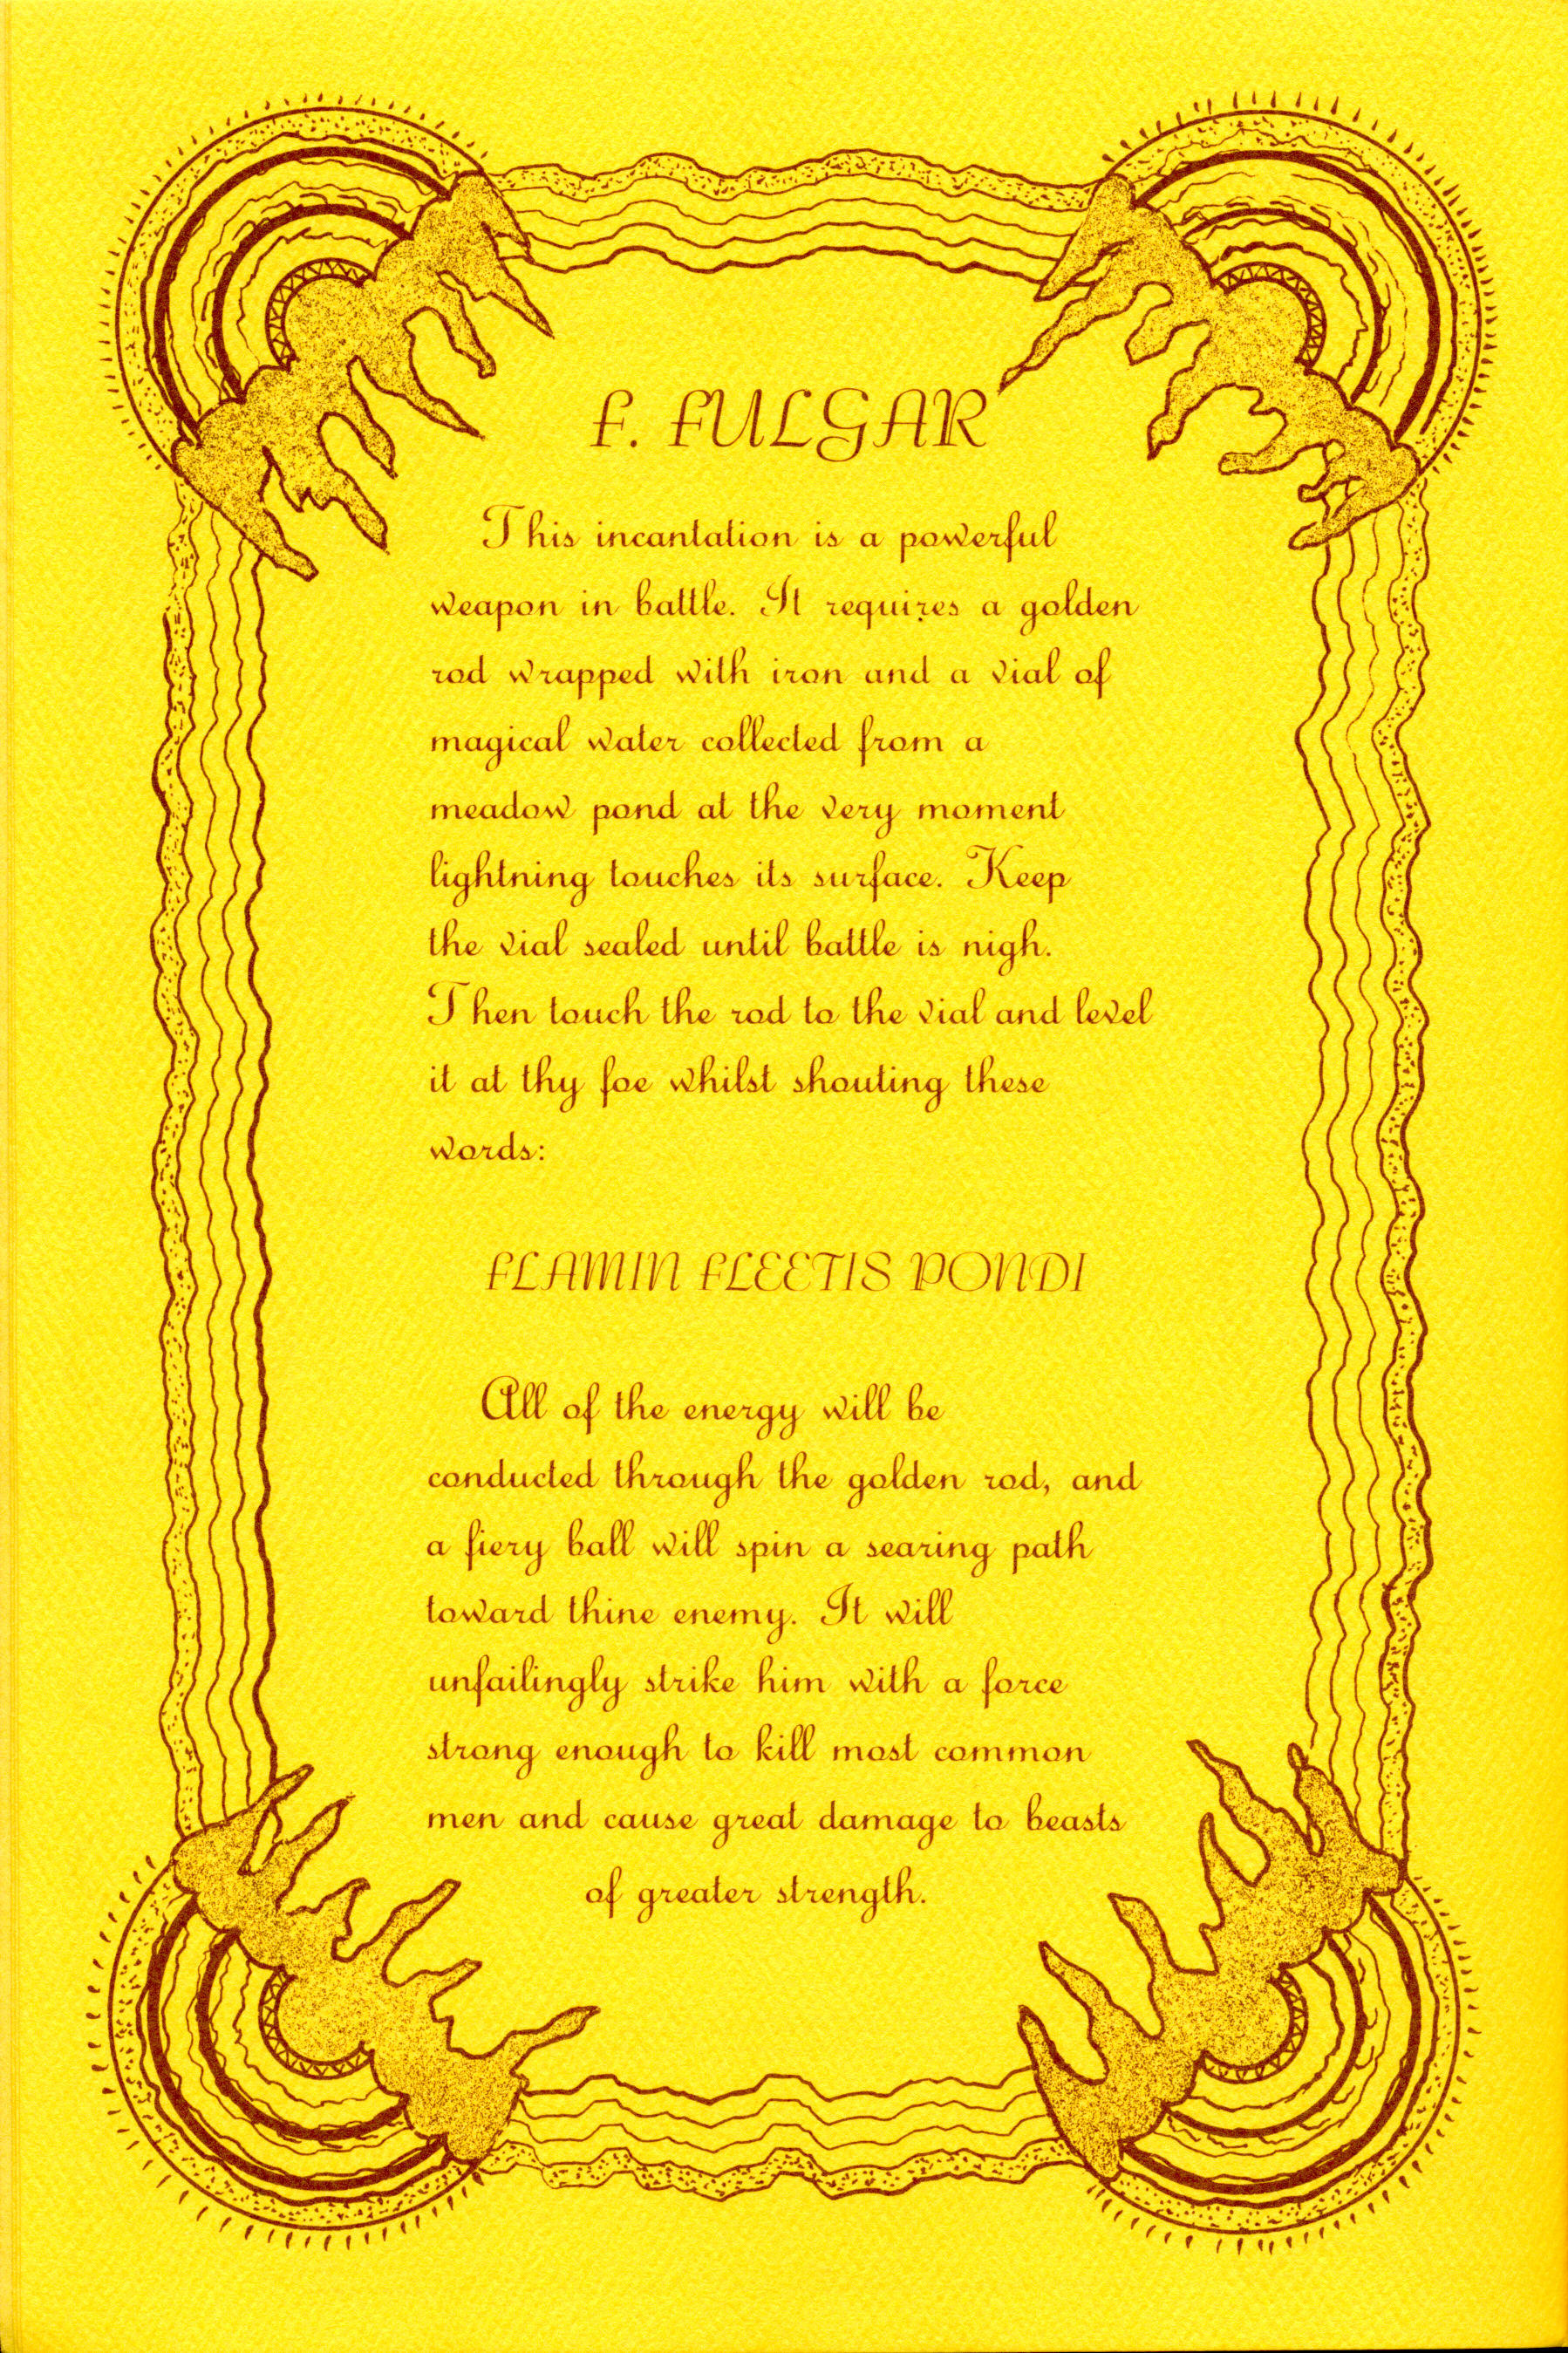 F. FULGAR
This incantation is a powerful
weapon in battle. It requires a golden
rod wrapped with iron and a vial of
magical water collected from a
meadow pond at the very moment
lightning touches its surface. Keep
the vial sealed until battle is nigh.
Then touch the rod to the vial and level
it at thy foe whilst shouting these
words:
FLAMIN FLEETIS PONDI
All of the energy will be
conducted through the golden rod, and
a fiery ball will spin a searing path
toward thine enemy. It will
unfailingly strike him with a force
strong enough to kill most common
men and cause great damage to beasts
of greater strength.